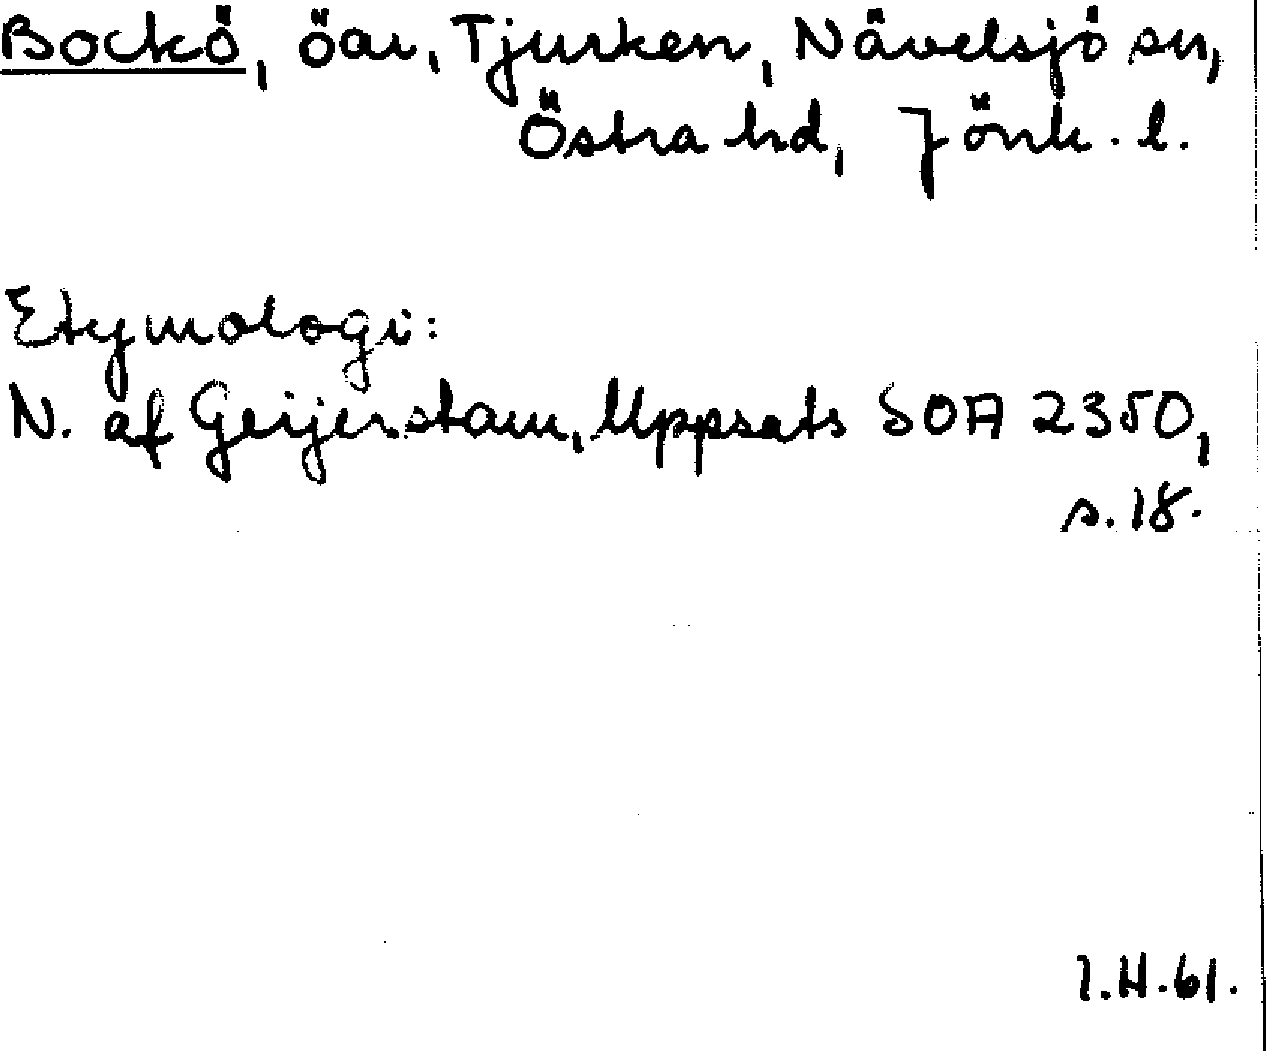 Bockö, öar, Tjurken, Nävelsjö sn,
Östra hd, Jönk. l.
Etymologi:
N. af Geijerstam, Uppsats SOA 2350,
s. 18.
I.H.61.